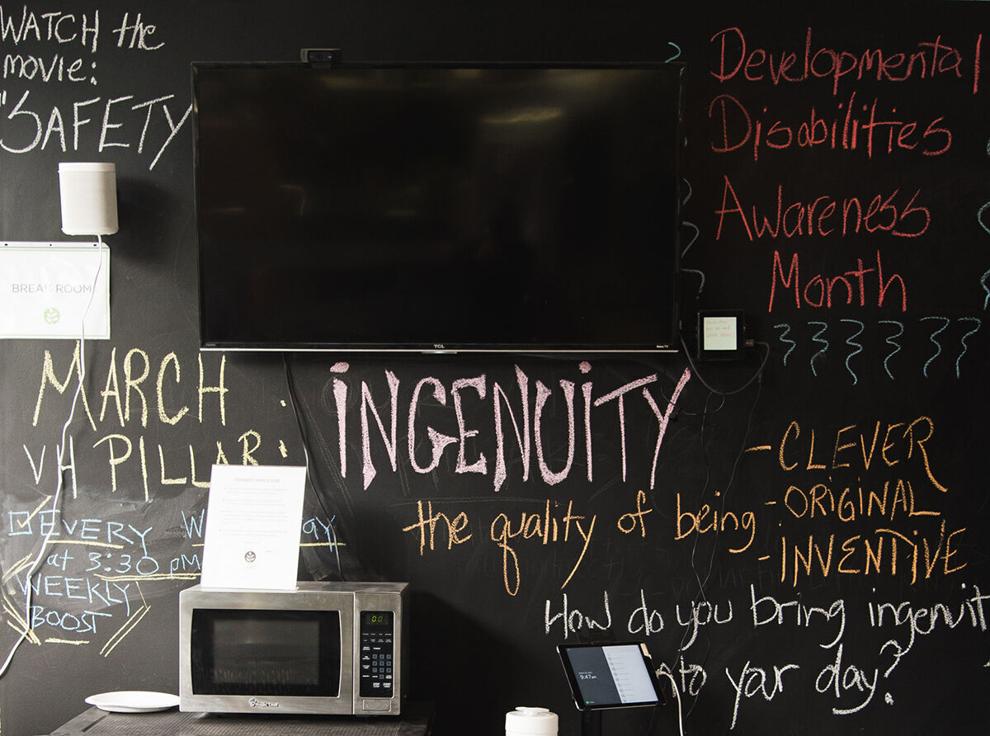 WATCH the
movie:
"SAFETY
BREAK ROOM
TCL
Developmental
Disabilities
Awareness
Month
MARCH :
VH PILLAR:
EVERY W AY
at 3:30 pm
WEEKLY
BOOST
INGENUITY
the quality of being
-CLEVER
-ORIGINAL
-INVENTIVE
How do you bring ingenuit
nto yar day?